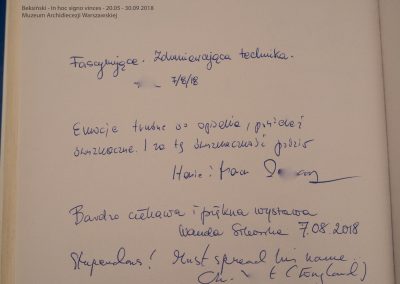 Beksiński - In hoc signo vinces - 20.05 - 30.09 2018
Muzeum Archidiecezji Warszawskiej
Fascynujące. Zdumiewająca technika.
7/8/18
Emocje trudne do opisania,
I za tę
Bardzo ciekawa i piękna wystawa
Wanda 7.08.2018
Stupendous! Must spread his name
(England)